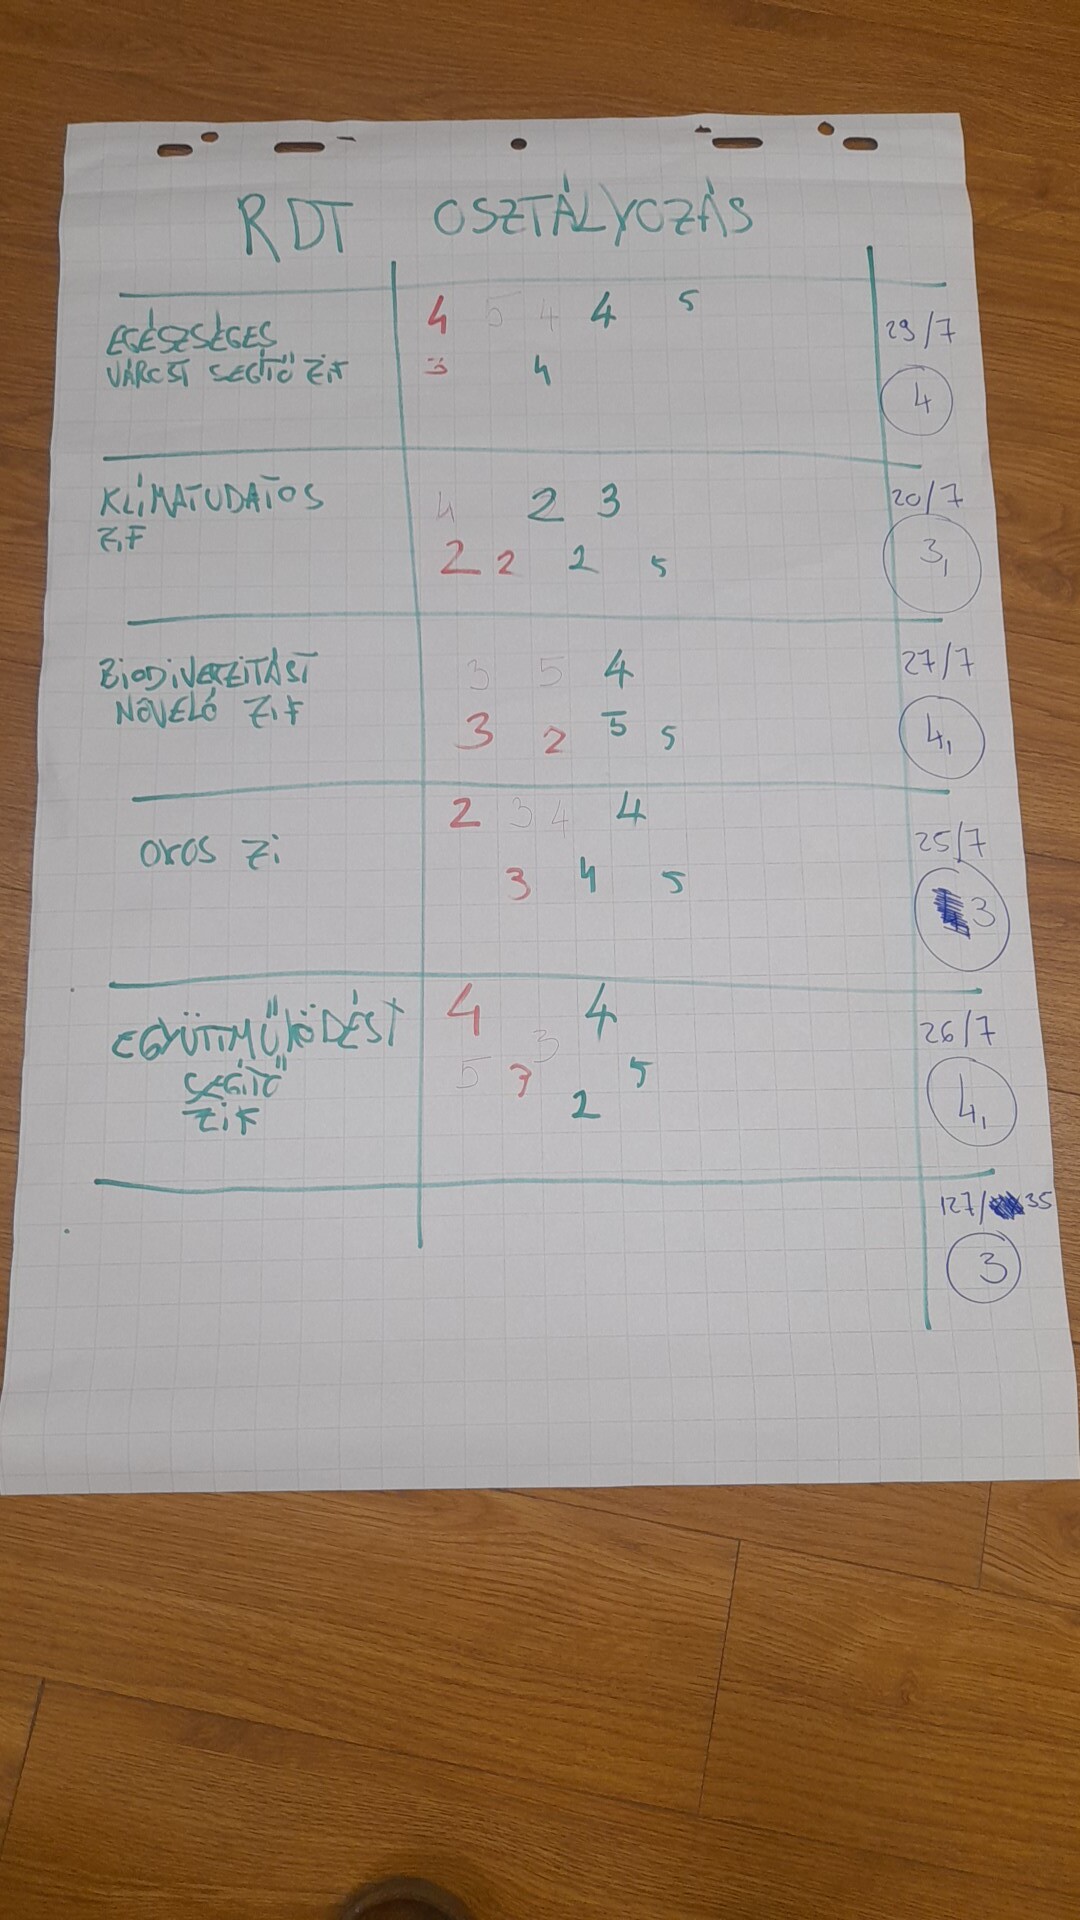 RDT OSZTÁLYOZÁS
EGÉSZSÉGES
VÁROST SEGÍTŐ ZIF
4 5 4 4 5
3 4
29/7
4
KLÍMATUDATOS
ZIF
4 2 3
2 2 2 5
20/7
3,
BIODIVERZITÁST
NÖVELŐ ZIF
3 5 4
3 2 5 5
27/7
4,
OKOS ZI
2 3 4 4
3 4 5
25/7
3
EGYÜTTMŰKÖDÉST
SEGÍTŐ
ZIF
4 4
3
5 3 5
2
26/7
4,
127/35
3